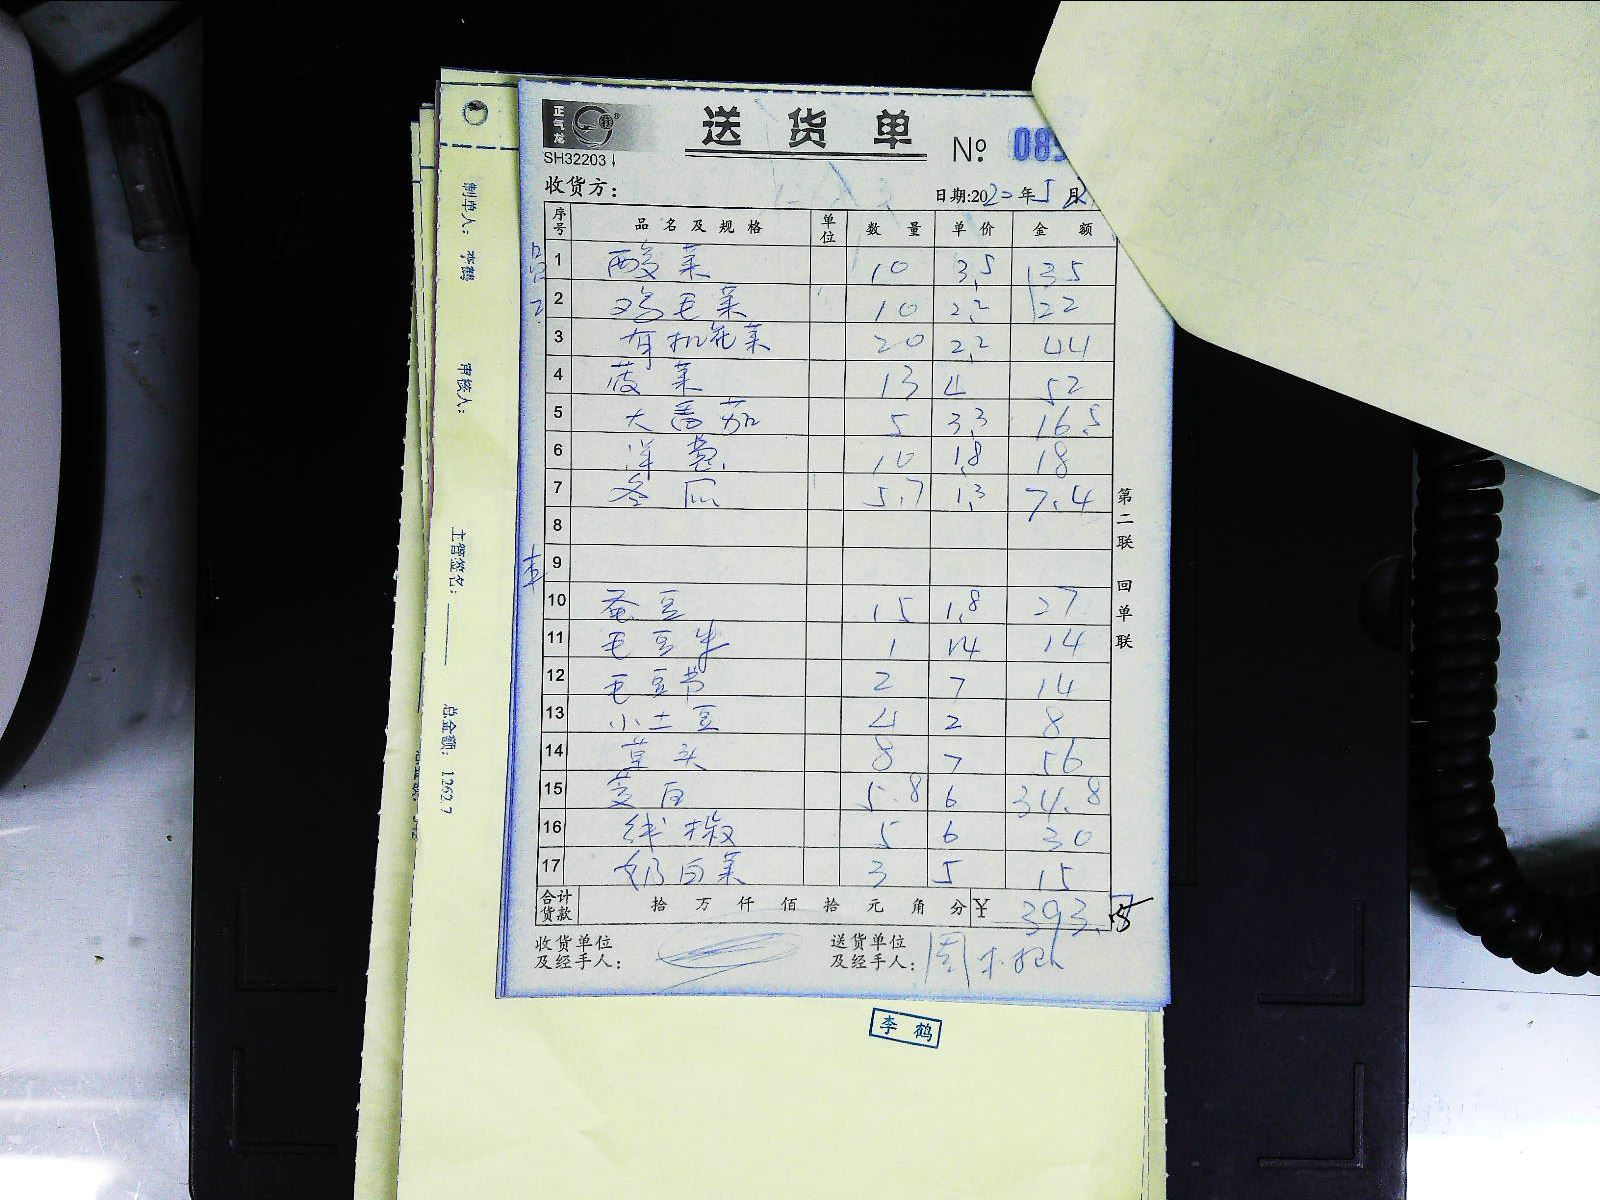 正气龙
送货单
SH32203
№ 085
收货方：
日期:2020年5月
序号 品名及规格 单位 数量 单价 金额
1 酸菜 10 3.5 35
2 鸡毛菜 10 2.2 22
3 有机花菜 20 2.2 44
4 菠菜 13 4 52
5 大番茄 5 3.3 16.5
6 洋葱 10 1.8 18
7 冬瓜 5.7 1.3 7.4
8
9
10 蚕豆 15 1.8 27
11 毛豆 1 14 14
12 毛豆节 2 7 14
13 小土豆 4 2 8
14 草头 8 7 56
15 茭白 5.8 6 34.8
16 线椒 5 6 30
17 奶白菜 3 5 15
合计货款 拾万仟佰拾元角分 ¥ 393.
收货单位及经手人：
送货单位及经手人： 周
第二联 回单联
制单人： 李鹤 审核人： 主管签名： 总金额： 1262.7
李鹤